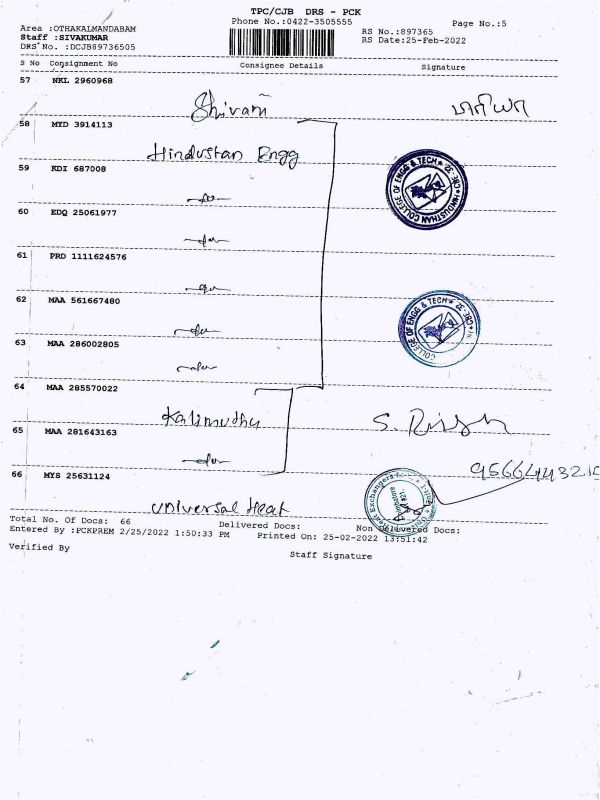 TPC/CJB DRS - PCK
Phone No.:0422-3505555
Page No.:5
Area :OTHAKALMANDABAM
Staff :SIVAKUMAR
DRS No. :DCJB89736505
RS No.:897365
RS Date:25-Feb-2022
S No Consignment No Consignee Details Signature
57 NKL 2960968
Shivani
58 MYD 3914113
Hindustan Engg
59 KDI 687008
-do-
60 EDQ 25061977
-do-
61 PRD 1111624576
-do-
62 MAA 561667480
-do-
63 MAA 286002805
-do-
HINDUSTHAN COLLEGE OF ENGG & TECH ★ CBE-32 ★
COLLEGE OF ENGG & TECH ★ CBE-32
64 MAA 285570022
Kalimuthu
65 MAA 281643163
-do-
66 MYS 25631124
Universal Heat
Total No. Of Docs: 66 Delivered Docs: Non Delivered Docs:
Entered By :PCKPREM 2/25/2022 1:50:33 PM Printed On: 25-02-2022 13:51:42
Verified By
Staff Signature